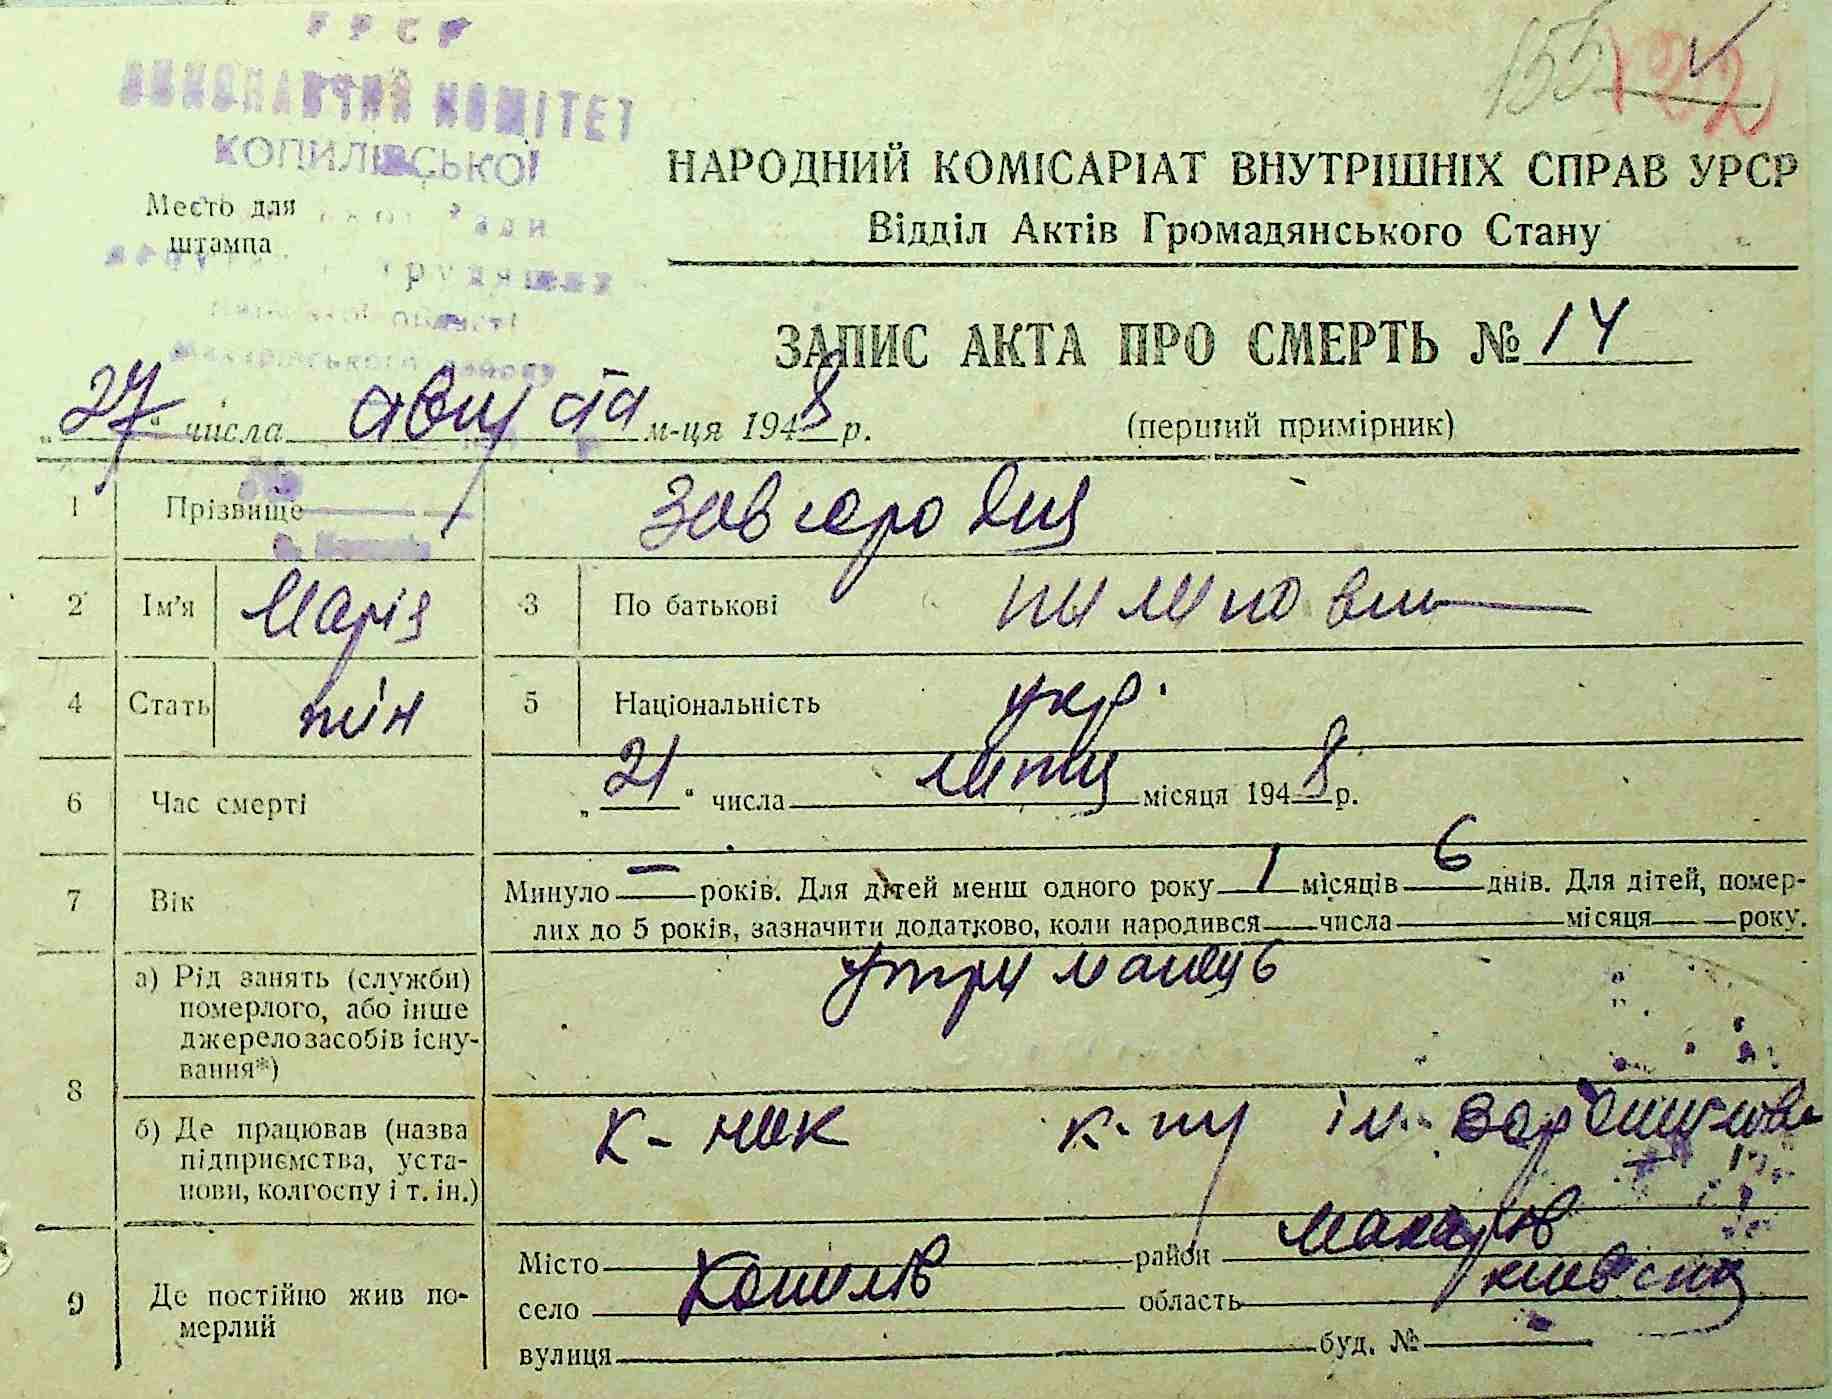 УРСР
ВИКОНАВЧИЙ КОМІТЕТ
КОПИЛІВСЬКОЇ
Место для
штампа
155 122
НАРОДНИЙ КОМІСАРІАТ ВНУТРІШНІХ СПРАВ УРСР
Відділ Актів Громадянського Стану
ЗАПИС АКТА ПРО СМЕРТЬ № 14
„27“ числа августа м-ця 1948 р.
(перший примірник)
1 Прізвище Завгородня
2 Ім'я Марія 3 По батькові Пилиповн
4 Стать жін 5 Національність укр.
6 Час смерті „21“ числа липня місяця 1948 р.
7 Вік Минуло — років. Для дітей менш одного року 1 місяців 6 днів. Для дітей, помер-
лих до 5 років, зазначити додатково, коли народився числа місяця року.
8 а) Рід занять (служби) утриманець
померлого, або інше
джерело засобів існу-
вання*)
б) Де працював (назва к-ник к-пу ім. Ворошилова
підприємства, уста-
нови, колгоспу і т. ін.)
9 Де постійно жив по-
мерлий
Місто район Макарів
село Копилів область Київська
вулиця буд. №